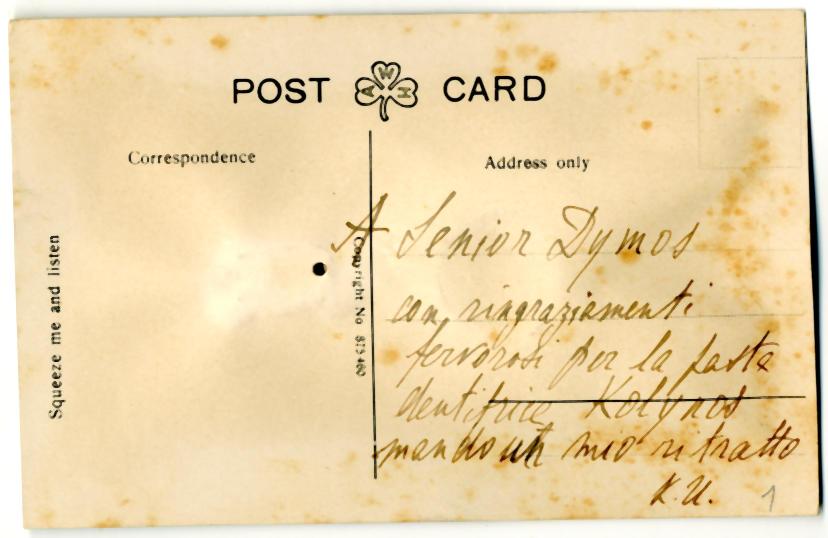 POST AWH CARD
Correspondence
Address only
Squeeze me and listen
Copyright No
A Senior Dymos
con ringraziamenti
fervorosi per la pasta
dentifrice Kolynos
mando un mio ritratto
K.U.
1